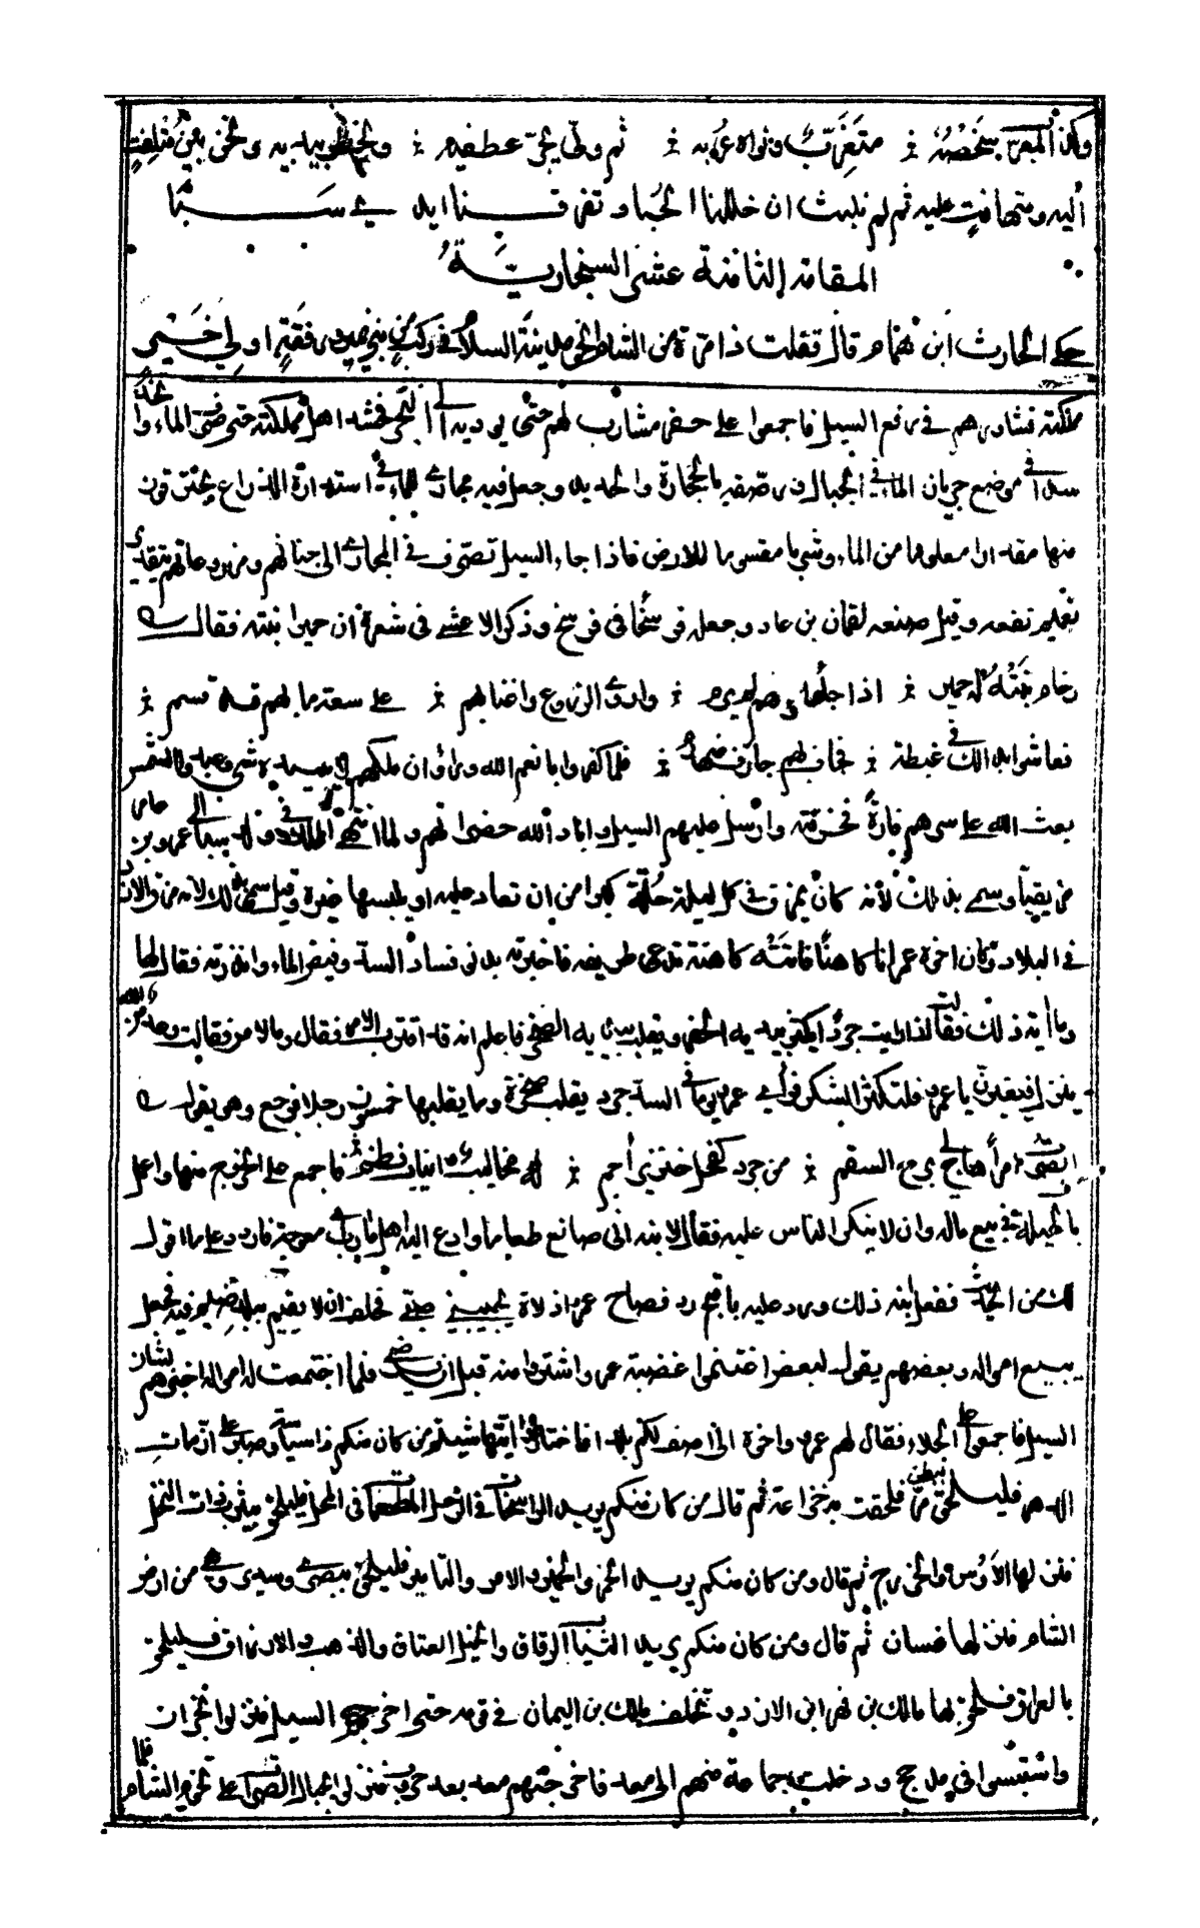 وكان المعرى بشخصه ؞ متعزبًا ونواه عربه ؞ ثم ولى يجرّ عطفيه ؞ ويخطر بيديه ونحن بين متلفت
اليه ومتهافت عليه ثم لم نلبث ان حللنا الحبا وتفرقنا ايدي سبا
المقامة الثامنة عشر السنجارية
حكى الحارث ابن همام قال قفلت ذا مرة من الشام انحو مدينة السلام في ركب من بني نمير ورفقة اولي خير
مملكته فشاورهم في دفع السيل فاجمعوا على حفر مشارب لهم حتى يوديه الى البحر فحشد اهل مملكته حتى صرف الماء واتخذ
سدا في موضع جريان الماء في الجبال ورصفه بالحجارة والحديد وجعل فيه مجاري للماء في استدارة الذراع يخترقون
منها مقدارا معلوما من الماء وشربا مقسوما للارض فاذا جاء السيل تصرف في المجاري الى جنانهم ومزروعاتهم بتقدير
نعمهم نفعه وقيل صنعه لقمان بن عاد وجعله فرسخا في فرسخ وذكر الاعشى في شعره ان حمير بنته فقال
رخام بنته له حمير ؞ اذا جاءها لم يرم ؞ واروى الزروع واعنابهم ؞ على سعة ما بهم قد قسم ؞
فعاشوا بذلك في غبطة ؞ فحاف بهم جارف منهدم ؞ فلما كفروا بانعم الله وراوا ان ملكهم لا يبيده شي وعبدوا الشمس
بعث الله على سدهم فارة فخرقته وارسل عليهم السيل واباد الله خضراهم ولما انتهى الملك في ولد سبا الى عمرو بن عامر
مزيقيا وسمي بذلك لانه كان يمزق في كل ليلة حلة كرها من ان تعاد عليه او يلبسها غيره وقيل سمي بذلك لانه مزق الازد
في البلاد وكان اخوه عمران كاهنا فاتته كاهنة تدعى طريفة فاخبرته بدنو فساد السد وفيض الماء وانذرته فقال لها
وما آية ذلك فقالت اذا رايت جرذا يكثر بيديه الحفر ويقلب بيديه الصخر فاعلم انه قد اقترب الامر فقال وما الامر فقالت وعد من الله
ينزل فيقين يا عمرو فلتكثر الشكر فراى عمرو يوما في السد جرذ يقلب صخرة وما يقلبها خمسون رجلا فرجع وهو يقول
ابصرت امرا هاج لي برح السقم ؞ من جرذ كفحل خنزير اجم ؞ له مخاليب وانياب قطم فاجمع على الخروج منها واعمل
بالحيلة في بيع ماله وان لا ينكر الناس عليه فقال لابنه اني صانع طعاما وادع اليه اهل مارب فاردد علي ما اقول
لك من الحديث ففعل ابنه ذلك ورد عليه باقبح رد فصاح عمرو اذلاه يجيبني صبي فحلف ان لا يقيم ببلد ضيم فيه فجعل
يبيع امواله وبعضهم يقول لبعض اغتنموا غضبة عمرو واشتروا منه قبل ان يرضى فلما اجتمعت له امواله اخبرهم بشان
السيل فاجمعوا على الجلاء فقال لهم عمرو واخوه اني اصف لكم بلدا فاختاروا ايتها شيتم من كان منكم ذا سياسة وصبر على ازمات
الدهر فليلحق ببطن مر فلحقت به خزاعة ثم قال من كان منكم يريد الراسخات في الوحل المطعمات في المحل فليلحق بيثرب ذات النخل
فنزلها الاوس والخزرج ثم قال ومن كان منكم يريد الخمر والخمير والامر والتامير فليلحق ببصرى وسدير وهي من ارض
الشام فنزلها غسان ثم قال ومن كان منكم يريد الثياب الرقاق والخيل العتاق والذهب والاوراق فليلحق
بالعراق فلحق بها مالك بن فهر ابن الازد وتخلف مالك بن اليمان في قومه حتى اخرجهم السيل فنزلوا نجران
وانتسبوا في مذحج ودخلت جماعة منهم الى معد فاخرجتهم معد بعد حروب فنزلوا جبال السراة على تخوم الشام فلما